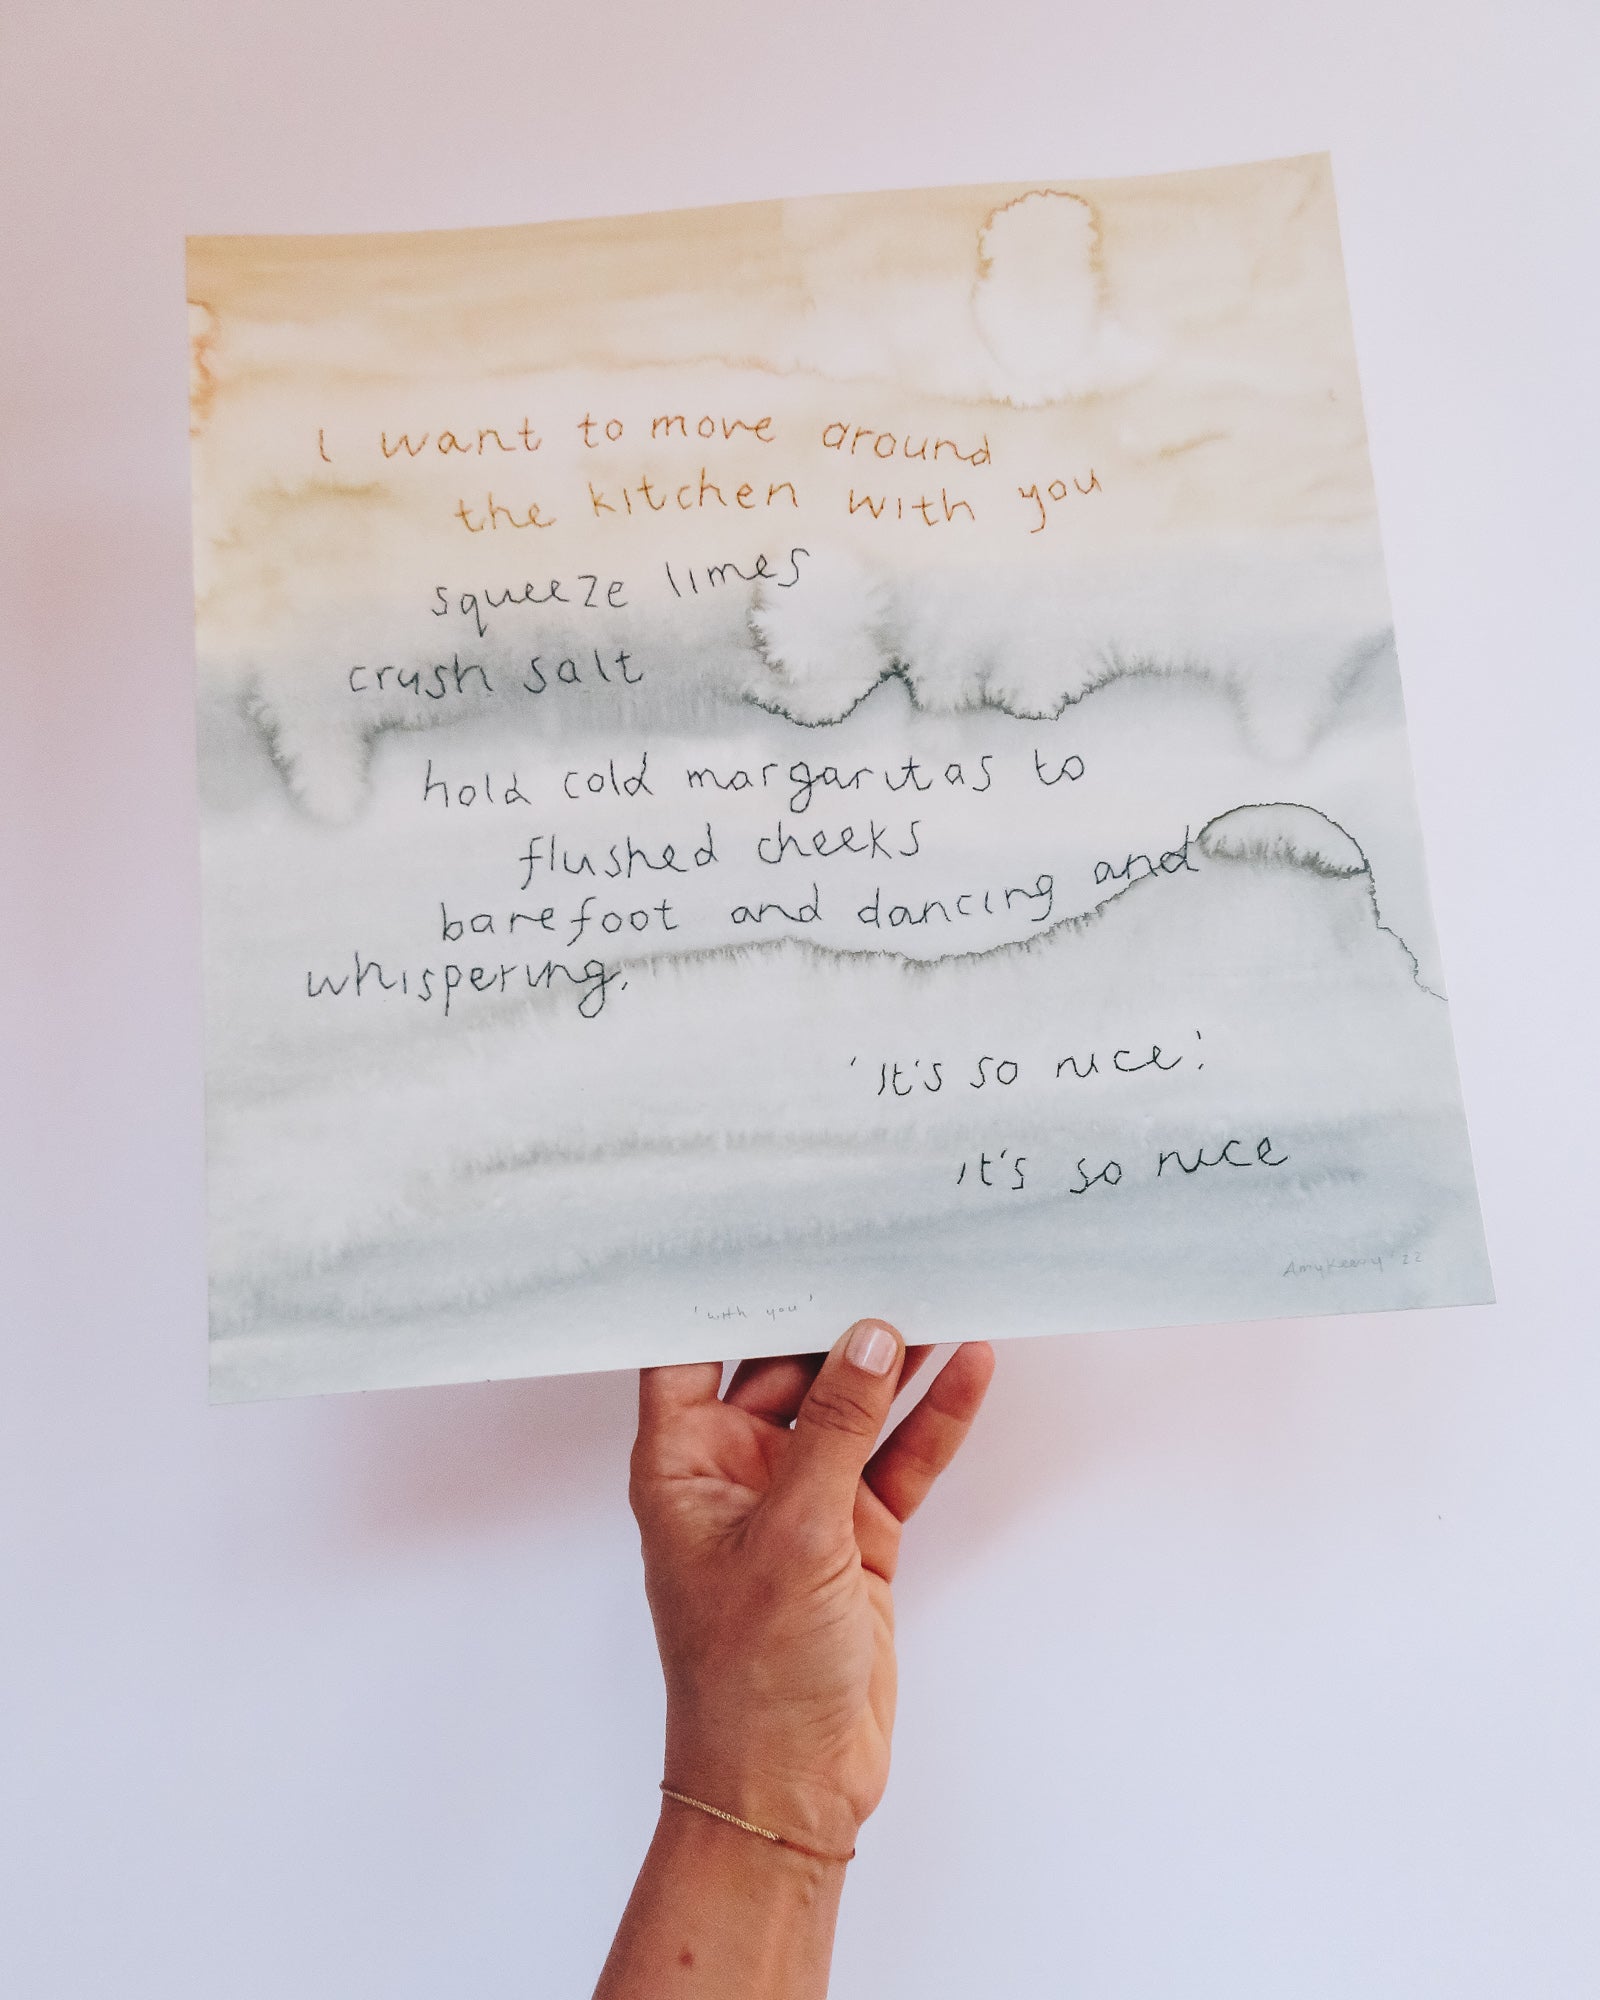 I want to move around
the kitchen with you
squeeze limes
crush salt
hold cold margaritas to
flushed cheeks
barefoot and dancing and
whispering,
'it's so nice'
it's so nice
Amy Keevy '22
'with you'